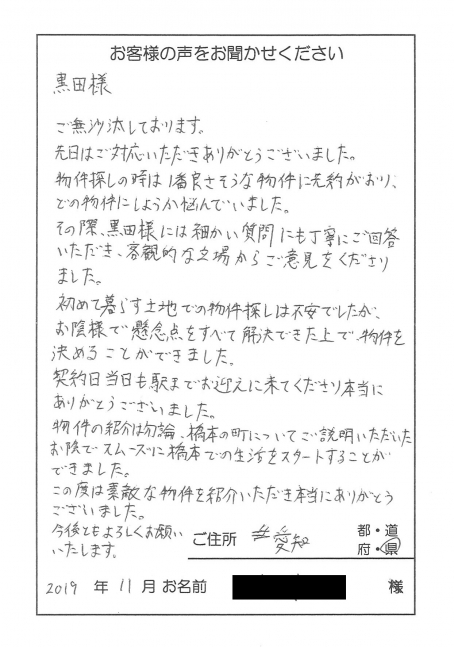 お客様の声をお聞かせください
黒田様
ご無沙汰しております。
先日はご対応いただきありがとうございました。
物件探しの時は1番良さそうな物件に先約がおり、
どの物件にしようか悩んでいました。
その際、黒田様には細かい質問にも丁寧にご回答
いただき、客観的な立場からご意見をくださり
ました。
初めて暮らす土地での物件探しは不安でしたが、
お陰様で懸念点をすべて解決できた上で、物件を
決めることができました。
契約日当日も駅までお迎えに来てくださり本当に
ありがとうございました。
物件の紹介は勿論、橋本の町についてご説明いただいた
お陰でスムーズに橋本での生活をスタートすることが
できました。
この度は素敵な物件を紹介いただき本当にありがとう
ございました。
今後ともよろしくお願い
いたします。
ご住所 愛知 都・道
府・県
2019 年 11 月 お名前 様